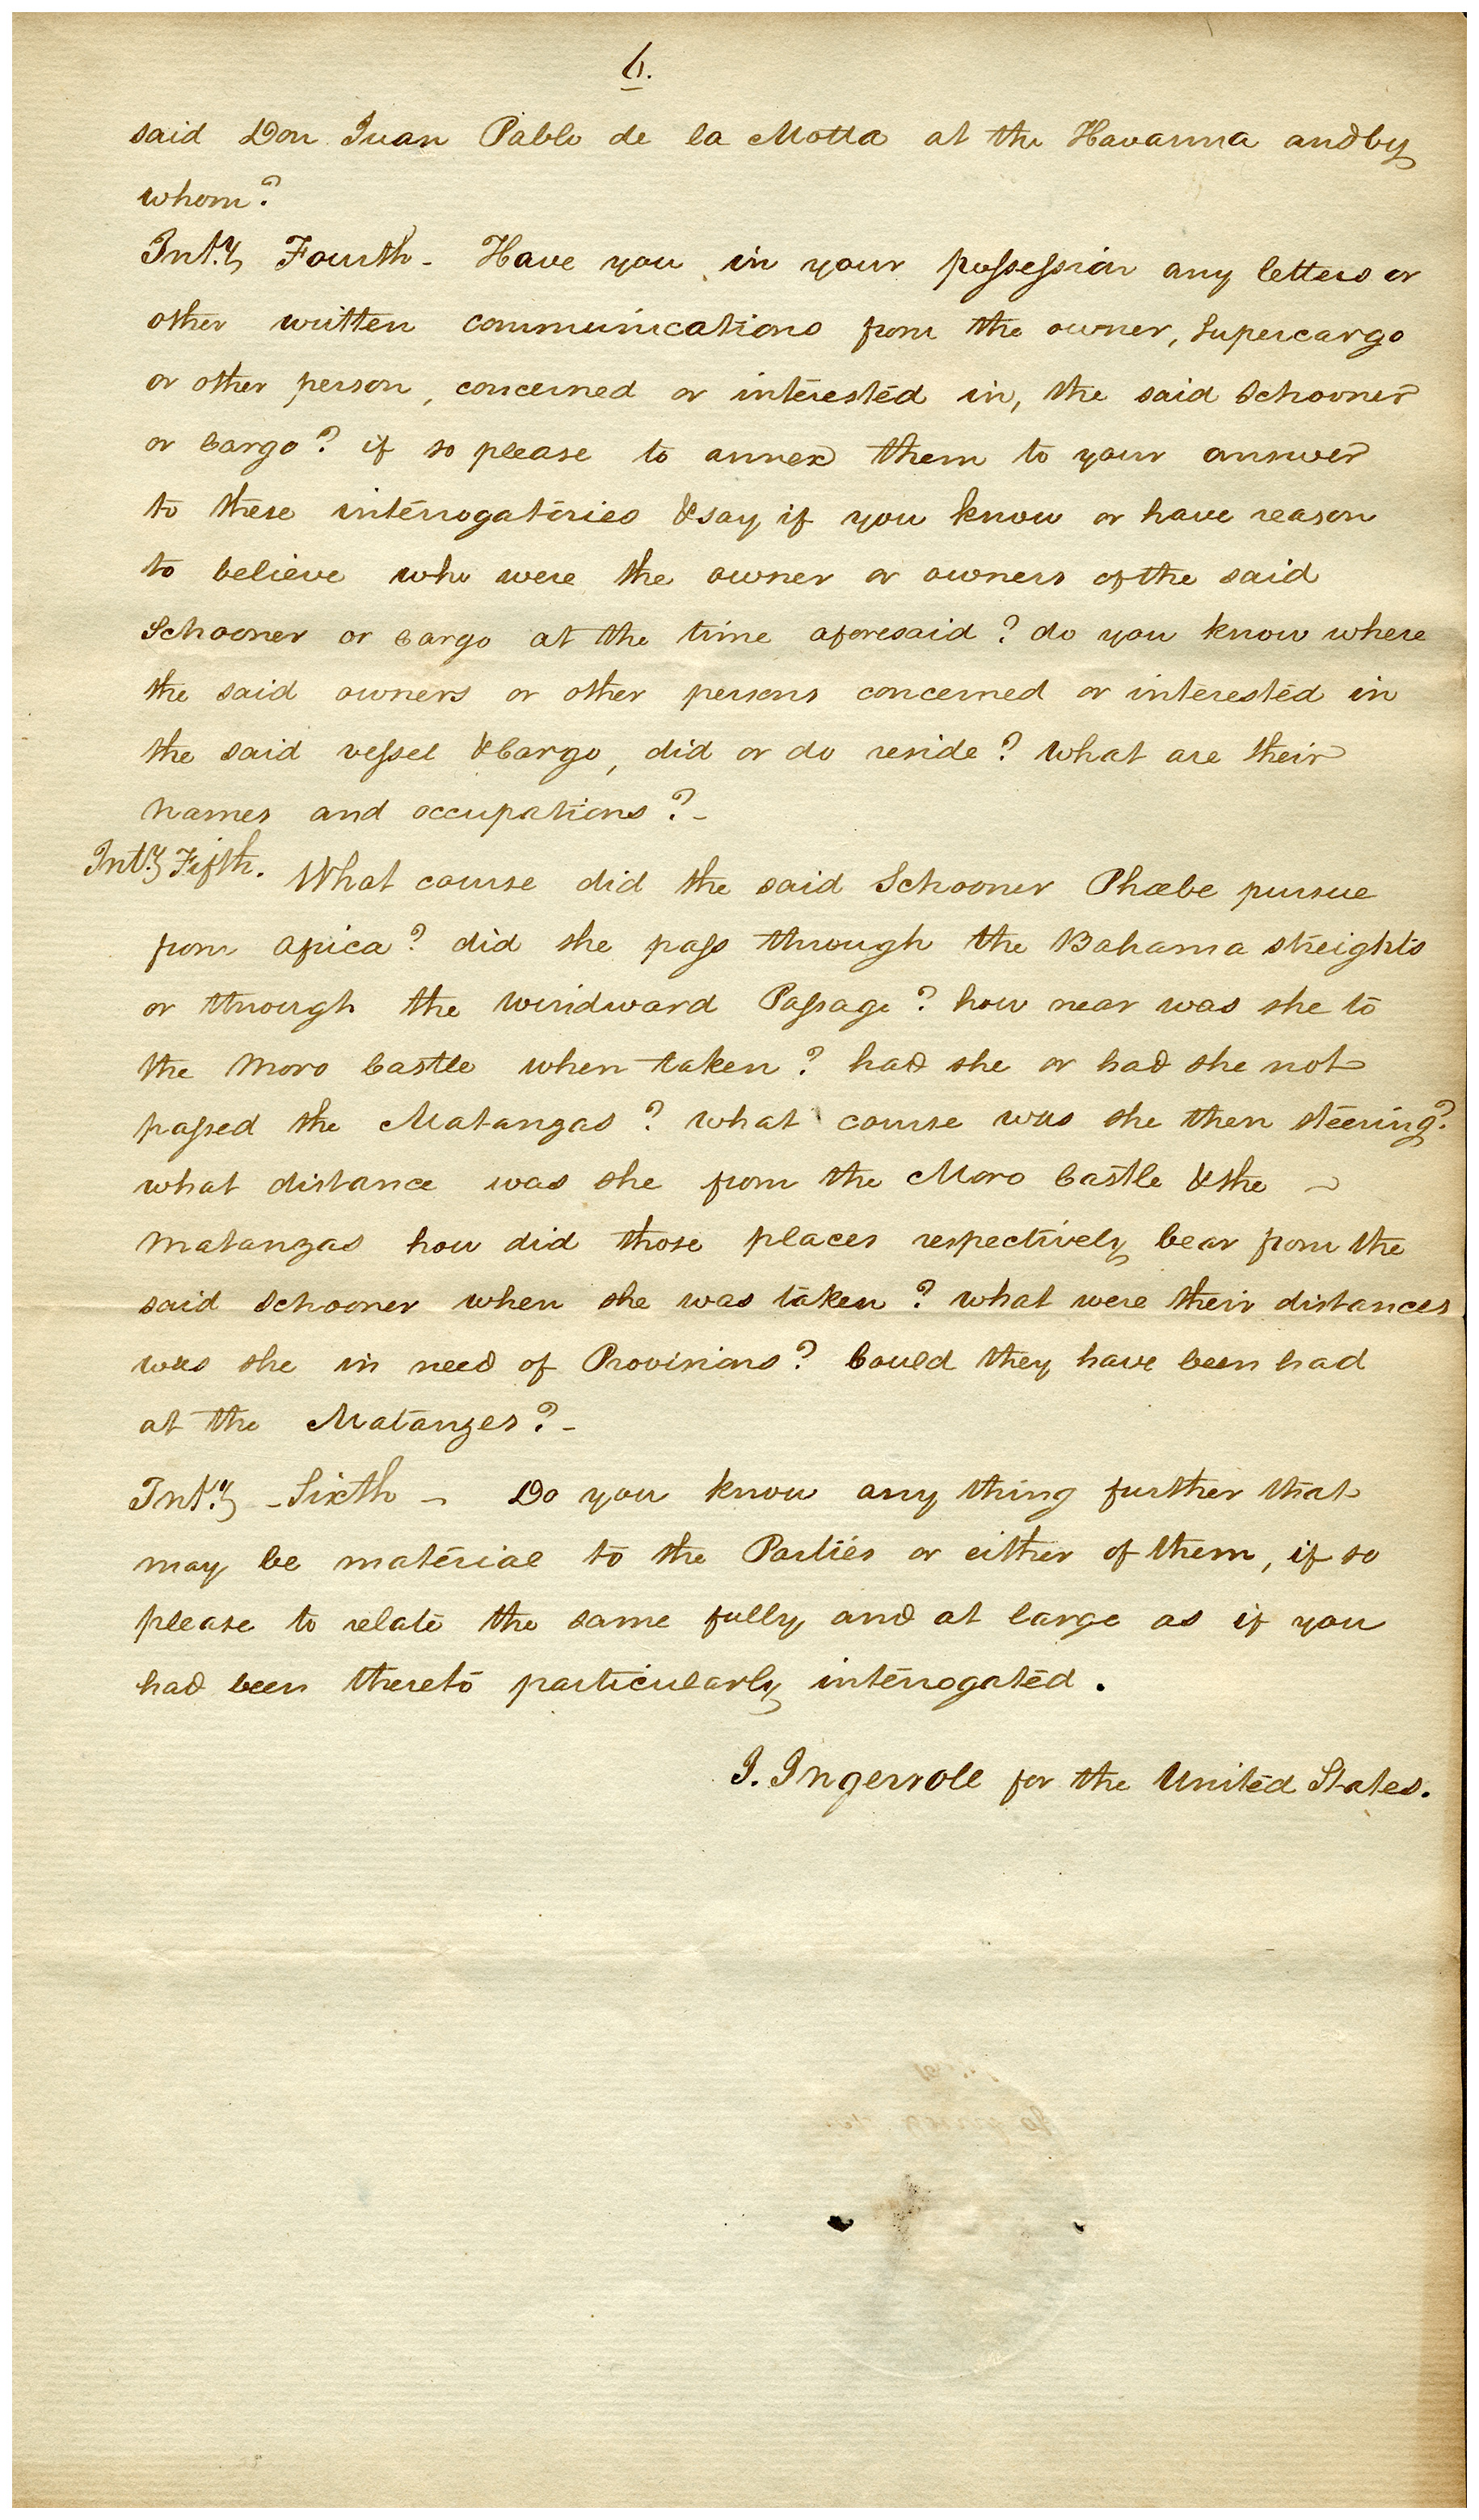 6.
said Don Juan Pablo de la Motta at the Havanna and by
whom?
Int.y Fourth - Have you in your possession any letters or
other written communications from the owner, Supercargo
or other person, concerned or interested in, the said Schooner
or Cargo? if so please to annex them to your answer
to these interrogatories & say if you know or have reason
to believe who were the owner or owners of the said
Schooner or Cargo at the time aforesaid? do you know where
the said owners or other persons concerned or interested in
the said vessel & Cargo, did or do reside? What are their
names and occupations? -
Int.y Fifth. What course did the said Schooner Phœbe pursue
from Africa? did she pass through the Bahama streights
or through the windward Passage? how near was she to
the Moro Castle when taken? had she or had she not
passed the Matanzas? what course was she then steering?
what distance was she from the Moro Castle & the ~
Matanzas how did those places respectively bear from the
said Schooner when she was taken? what were their distances
was she in need of Provisions? Could they have been had
at the Matanzes? -
Int.y - Sixth - Do you know any thing further that
may be material to the Parties or either of them, if so
please to relate the same fully and at large as if you
had been thereto particularly interrogated.
J. Ingersoll for the United States.